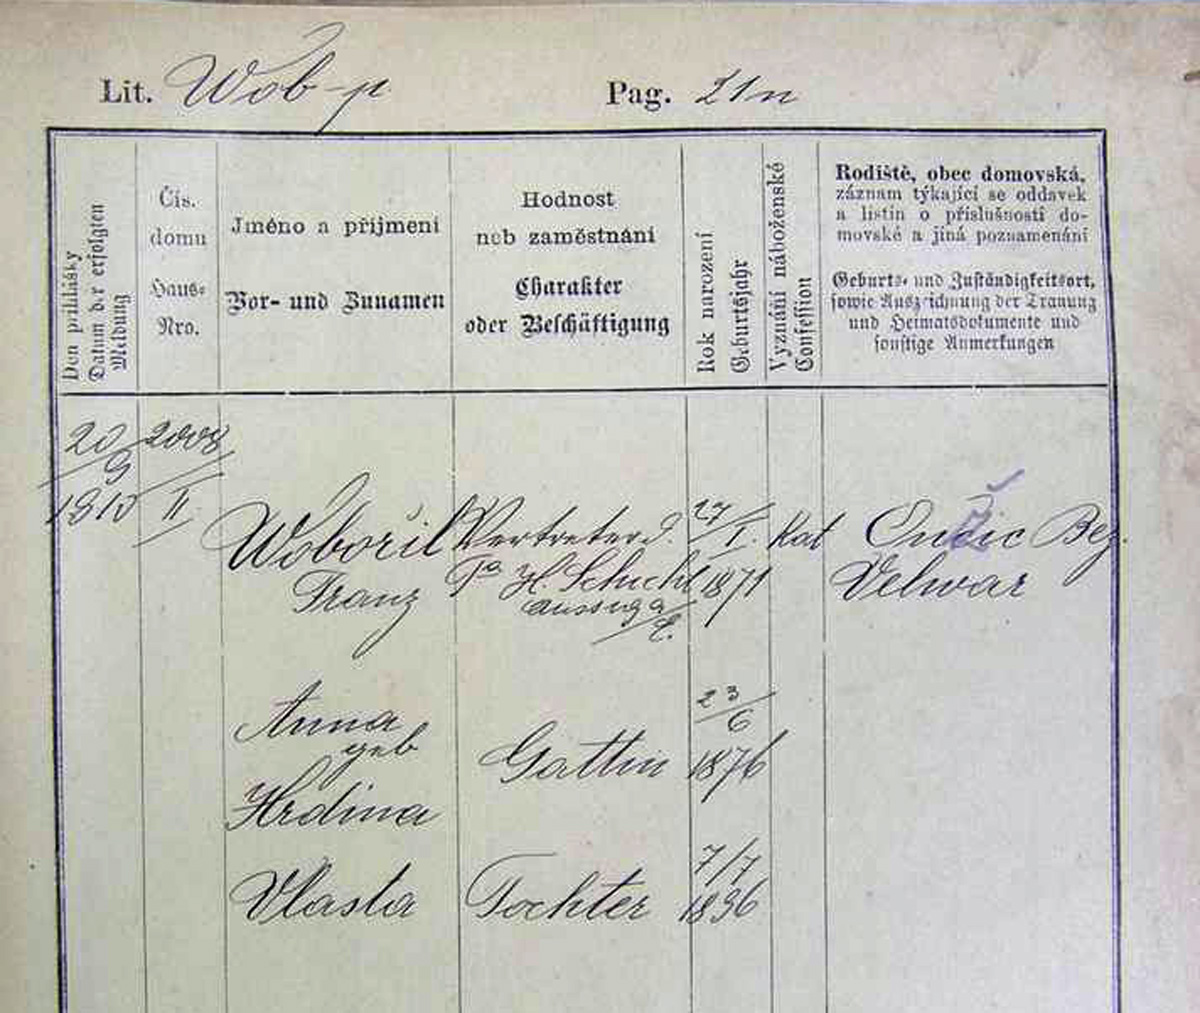 Lit. Wob-p Pag. 21n
Den přihlášky
Datum der erfolgten
Meldung
Čís.
domu
Haus-
Nro.
Jméno a příjmení
Vor- und Zunamen
Hodnost
neb zaměstnání
Charakter
oder Beschäftigung
Rok narození
Geburtsjahr
Vyznání náboženské
Confession
Rodiště, obec domovská,
záznam týkající se oddavek
a listin o příslušnosti do-
movské a jiná poznamenání
Geburts- und Zuständigkeitsort,
sowie Auszeichnung der Trauung
und Heimatsdokumente und
sonstige Anmerkungen
20/9 2008
II
Wobořil Vertreter d. 27/I. Kat Bez.
Franz Fa H. Schicht 1871 Velwar
Aussig a/E.
Anna 23/6
geb Gattin 1876
Hrdina
7/7
Vlasta Tochter 1896